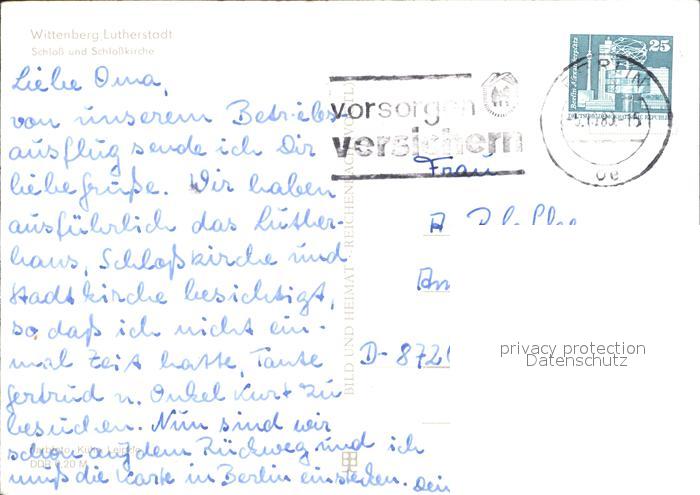 Wittenberg Lutherstadt
Schloß und Schloßkirche
Liebe Oma,
von unserem Betriebs-
ausflug sende ich Dir
liebe Grüße. Wir haben
ausführlich das Luther-
haus, Schloßkirche und
Stadtkirche besichtigt,
so daß ich nicht ein-
mal Zeit hatte, Tante
Gertrud u. Onkel Kurt zu
besuchen. Nun sind wir
schon auf dem Rückweg und ich
muß die Karte in Berlin einstecken. Dein
DDR 0,20 M
BILD UND HEIMAT · REICHENBACH
vorsorgen
versichern
25
Berlin-Alexanderplatz
Frau
D-872
privacy protection
Datenschutz